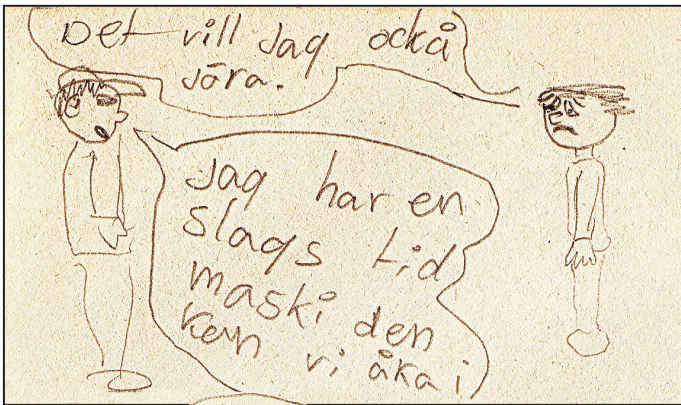 Det vill jag ockå
jöra.
jag har en
slags tid
maski den
kan vi åka i